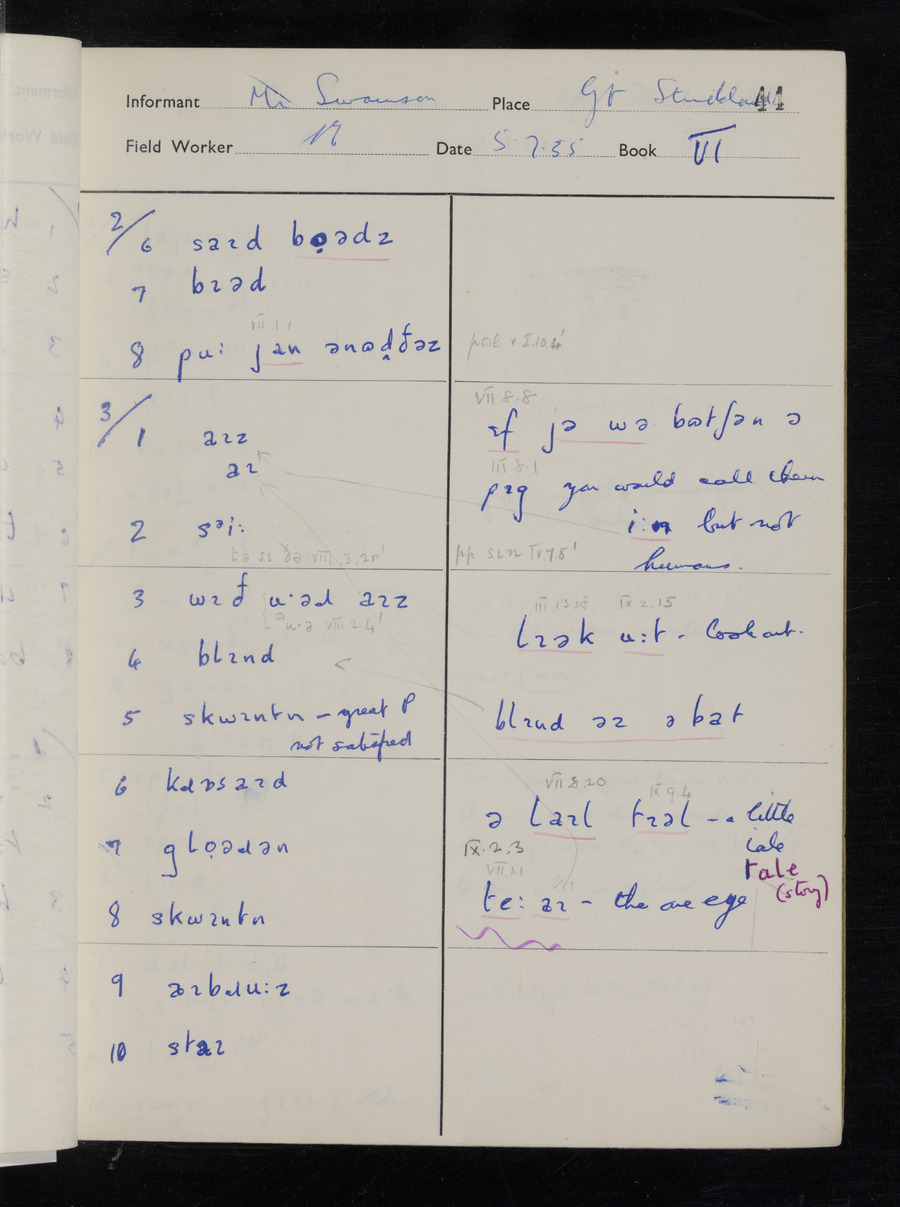 Informant Mr Swanson Place Gt Strickland 41
Field Worker Date 5.7.55 Book VI
2/6 saɪd bọədz
7 bɪəd
8 pu: jan ənɒd̯ðəz
VII.1.1
pɒl v I.10.4'
3/1 aɪz
aɪ
2 sᵊi:
tə sɪ ðə VIII.3.2n'
3 wɪð u·əd aɪz
ᵊu·ə VIII.2.4'
4 blɪnd
5 skwɪntn – great P
not satisfied
6 kɹɒsaɪd
7 glọəɹən
8 skwɪntn
9 aɪbɹu:z
10 staɪ
VII.8.8
ɪf jə wə bɒtʃən ə
III.8.1
pɪg you would call them
i:n but not
humans.
pp sɪn IV.7.8'
IX.2.15
lɪək u:t – look out.
blɪnd əz ə bat
VII.8.20 IX.9.4
ə laɪl tɪəl – a little
tale
tale
(story)
IX.2.3
VII.1.1
te: aɪ – the one eye